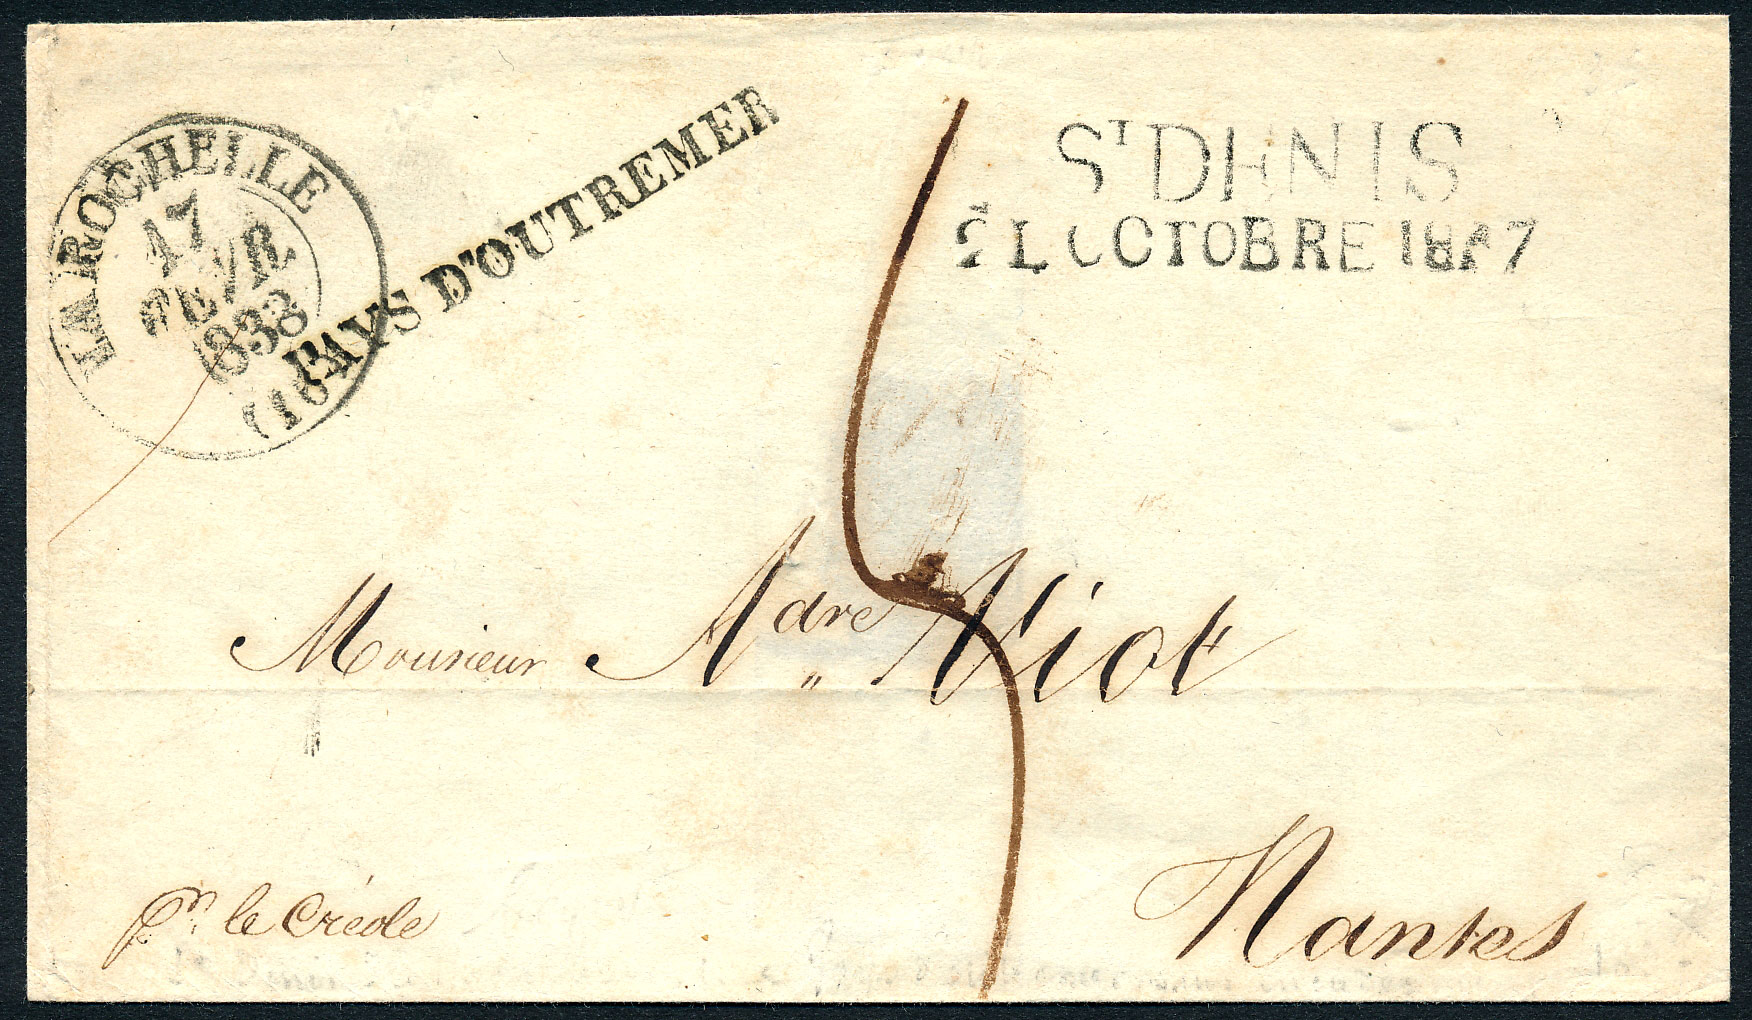 LA ROCHELLE
17
FEVR.
1838
(16)
PAYS D'OUTREMER
ST DENIS
OCTOBRE
5
Monsieur Adre Viot
Nantes
pr le Créole